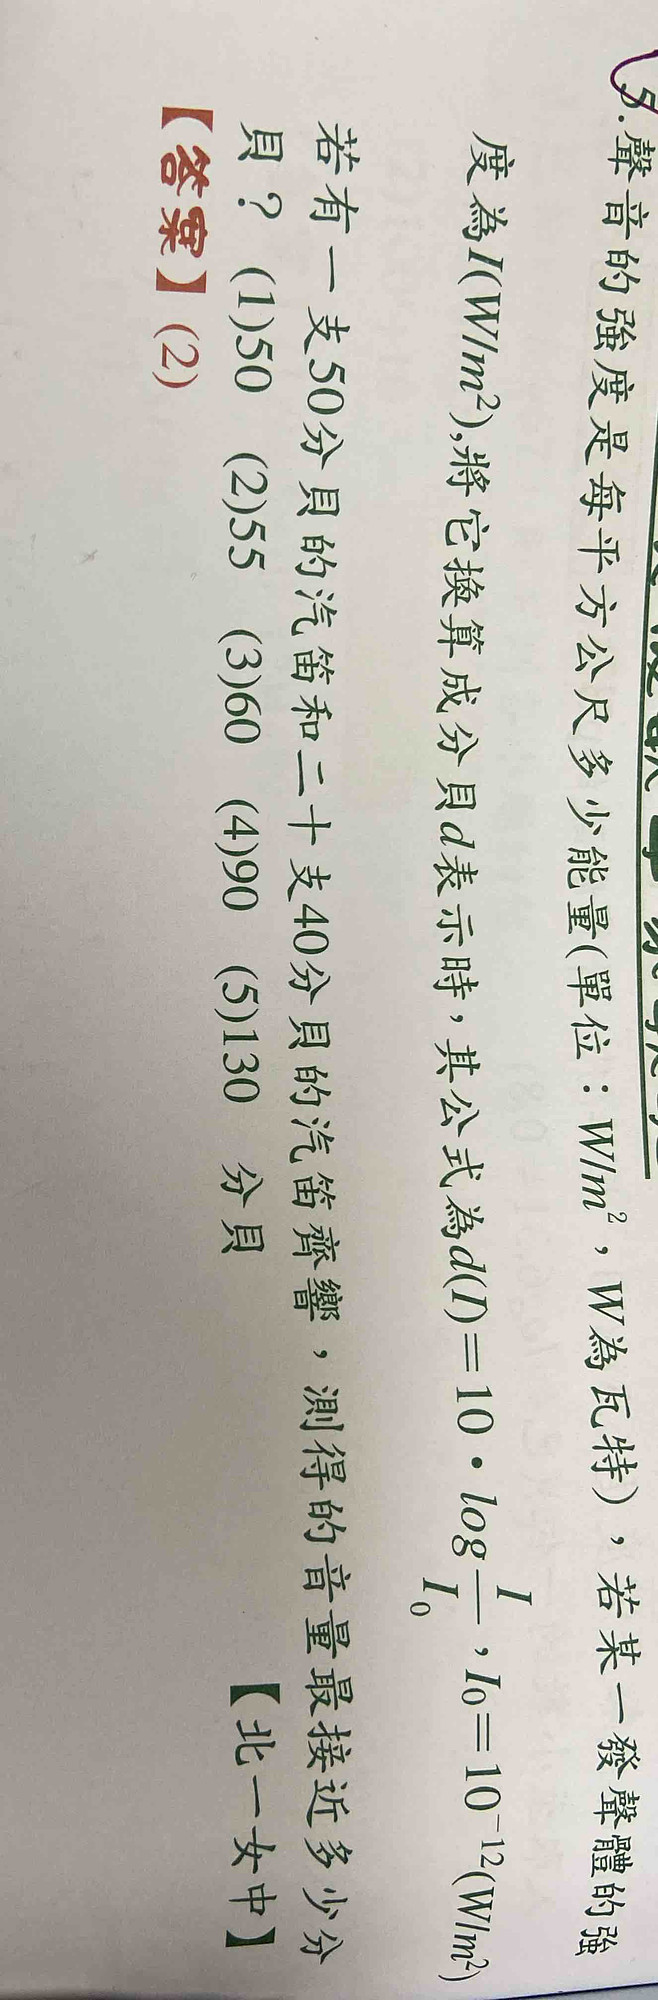 5.聲音的強度是每平方公尺多少能量(單位：W/m²，W為瓦特)，若某一發聲體的強
度為I(W/m²),將它換算成分貝d表示時，其公式為d(I)=10·log I/I₀，I₀=10⁻¹²(W/m²)
若有一支50分貝的汽笛和二十支40分貝的汽笛齊響，測得的音量最接近多少分
貝？ (1)50 (2)55 (3)60 (4)90 (5)130 分貝 【北一女中】
【答案】(2)